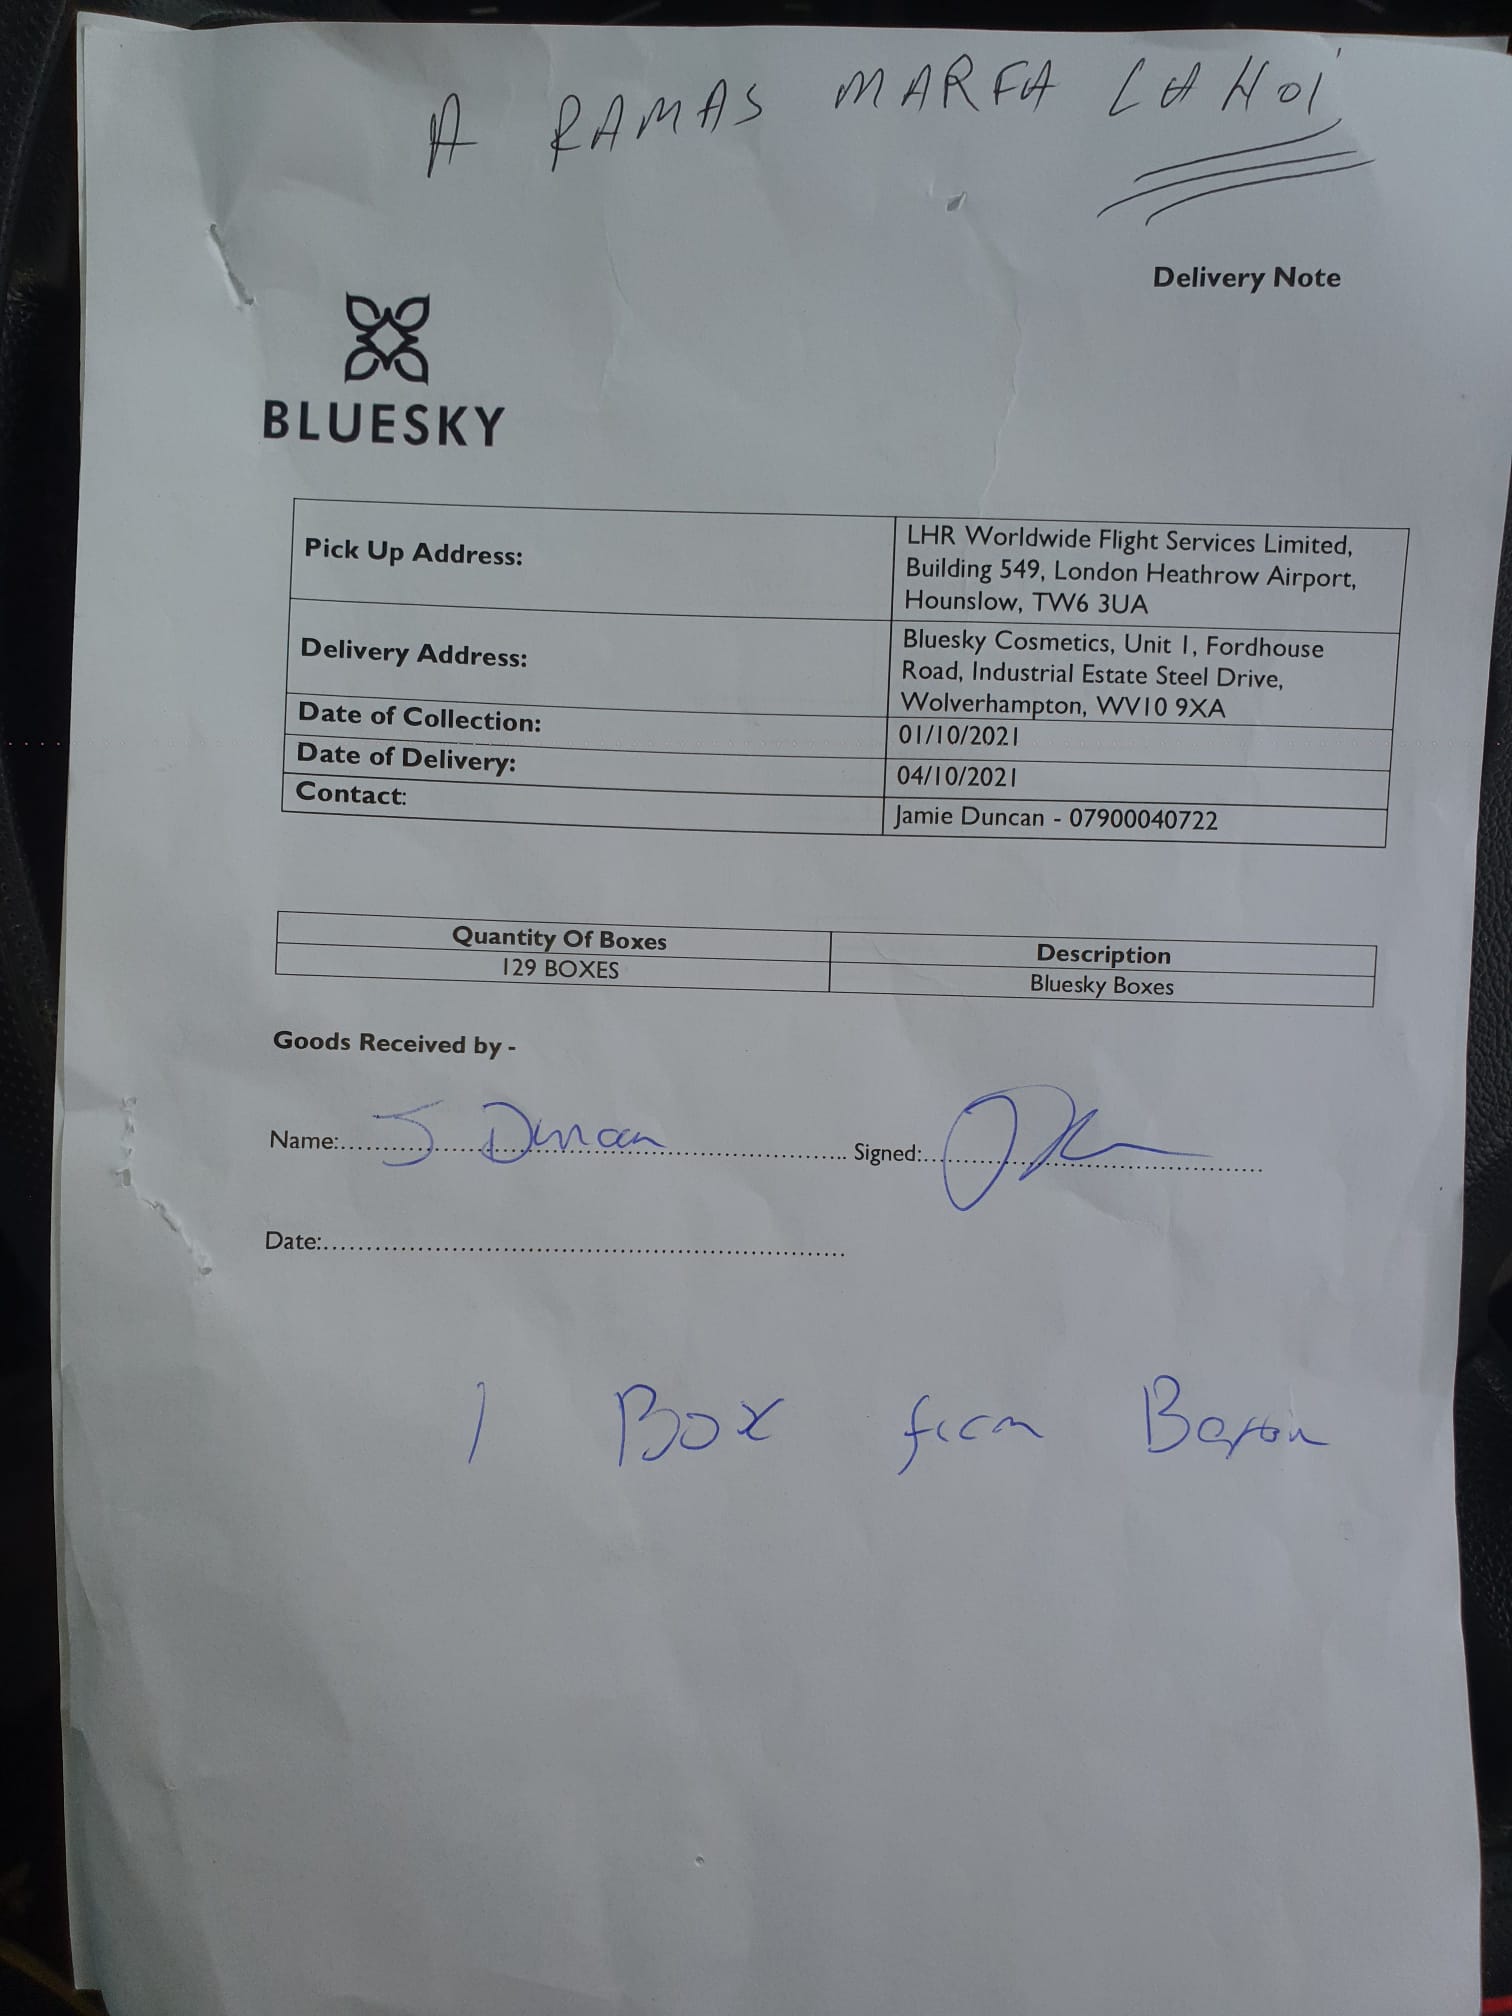 A RAMAS MARFA LA NOI
Delivery Note
BLUESKY
Pick Up Address:
LHR Worldwide Flight Services Limited,
Building 549, London Heathrow Airport,
Hounslow, TW6 3UA
Delivery Address:
Bluesky Cosmetics, Unit 1, Fordhouse
Road, Industrial Estate Steel Drive,
Wolverhampton, WV10 9XA
Date of Collection:
01/10/2021
Date of Delivery:
04/10/2021
Contact:
Jamie Duncan - 07900040722
Quantity Of Boxes
Description
129 BOXES
Bluesky Boxes
Goods Received by -
Name: J Duncan Signed:
Date:
1 Box from